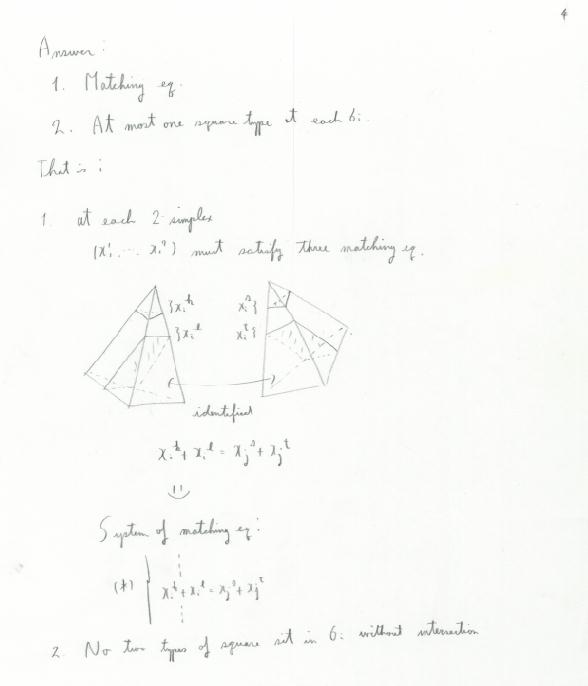 4
Answer:
1. Matching eq.
2. At most one square type at each 6i.
That is:
1. at each 2-simplex
(xi¹, ... xi⁷) must satisfy three matching eq.
}xiᵏ xiˢ{
}xiˡ xiᵗ{
identified
xiᵏ + xiˡ = xjˢ + xjᵗ
System of matching eq:
(*) { xiᵏ + xiˡ = xjˢ + xjᵗ
2. No two types of square sit in 6i without intersection